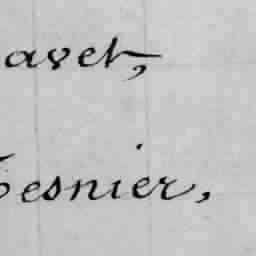 avet,
Besnier,